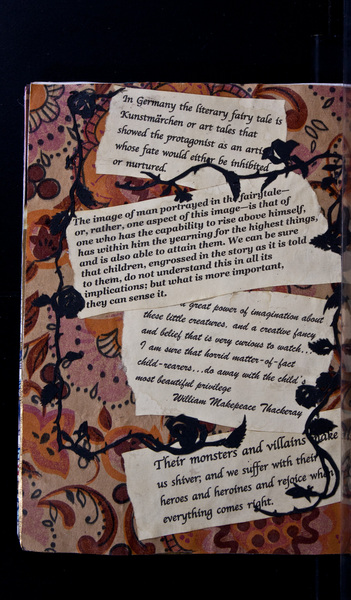 In Germany the literary fairy tale is
Kunstmärchen or art tales that
showed the protagonist as an artist
whose fate would either be inhibited
or nurtured.
The image of man portrayed in the fairytale—
or, rather, one aspect of this image—is that of
one who has the capability to rise above himself,
has within him the yearning for the highest things,
and is also able to attain them. We can be sure
that children, engrossed in the story as it is told
to them, do not understand this in all its
implications; but what is more important,
they can sense it.
a great power of imagination about
these little creatures, and a creative fancy
and belief that is very curious to watch...
I am sure that horrid matter-of-fact
child-rearers...do away with the child's
most beautiful privilege
William Makepeace Thackeray
Their monsters and villains make
us shiver; and we suffer with their
heroes and heroines and rejoice when
everything comes right.